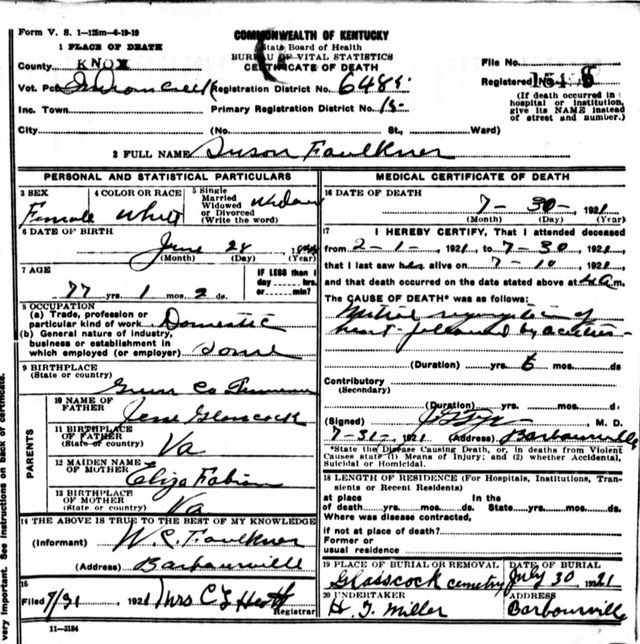 Form V. S. 1—125m—6-19-19
COMMONWEALTH OF KENTUCKY
State Board of Health
BUREAU OF VITAL STATISTICS
CERTIFICATE OF DEATH
1 PLACE OF DEATH
County KNOX
Vot. Pct. Registration District No. 648
Inc. Town Primary Registration District No.
City (No. St., Ward)
File No.
Registered No.
(If death occurred in
hospital or institution,
give its NAME instead
of street and number.)
2 FULL NAME Suson Faulkner
PERSONAL AND STATISTICAL PARTICULARS
3 SEX
Female
4 COLOR OR RACE
White
5 Single
Married
Widowed
or Divorced
(Write the word)
Widow
6 DATE OF BIRTH
June 28
(Month) (Day) (Year)
7 AGE
77 yrs. 1 mos. 2 ds.
IF LESS than 1
day hrs.
or min.
8 OCCUPATION
(a) Trade, profession or
particular kind of work Domestic
(b) General nature of industry,
business or establishment in
which employed (or employer)
9 BIRTHPLACE
(State or country)
Co
PARENTS
10 NAME OF
FATHER
Jesse Glasscock
11 BIRTHPLACE
OF FATHER
(State or country)
Va
12 MAIDEN NAME
OF MOTHER
Eliza Fabian
13 BIRTHPLACE
OF MOTHER
(State or country)
Va
14 THE ABOVE IS TRUE TO THE BEST OF MY KNOWLEDGE
(Informant) Faulkner
(Address) Barbourville
15
Filed 7/31 1921 Mrs C
Registrar
11—3184
MEDICAL CERTIFICATE OF DEATH
16 DATE OF DEATH
7-30-, 1921
(Month) (Day) (Year)
17
I HEREBY CERTIFY, That I attended deceased
from 2-1-, 1921, to 7-30, 1921,
that I last saw alive on 7-10, 1921,
and that death occurred on the date stated above at m.
The CAUSE OF DEATH* was as follows:
Mitral regurgitation of
heart followed by
(Duration) yrs. 6 mos. ds
Contributory
(Secondary)
(Duration) yrs. mos. ds
(Signed) M. D.
7-31-, 1921 (Address) Barbourville
*State the Disease Causing Death, or, in deaths from Violent
Causes state (1) Means of Injury; and (2) whether Accidental,
Suicidal or Homicidal.
18 LENGTH OF RESIDENCE (For Hospitals, Institutions, Tran-
sients or Recent Residents)
at place In the
of death yrs. mos. ds. State yrs. mos. ds.
Where was disease contracted,
if not at place of death?
Former or
usual residence
19 PLACE OF BURIAL OR REMOVAL
Glasscock cemetery
DATE OF BURIAL
July 30 1921
20 UNDERTAKER
H. T. Miller
ADDRESS
Barbourville
very important. See instructions on back of certificate.